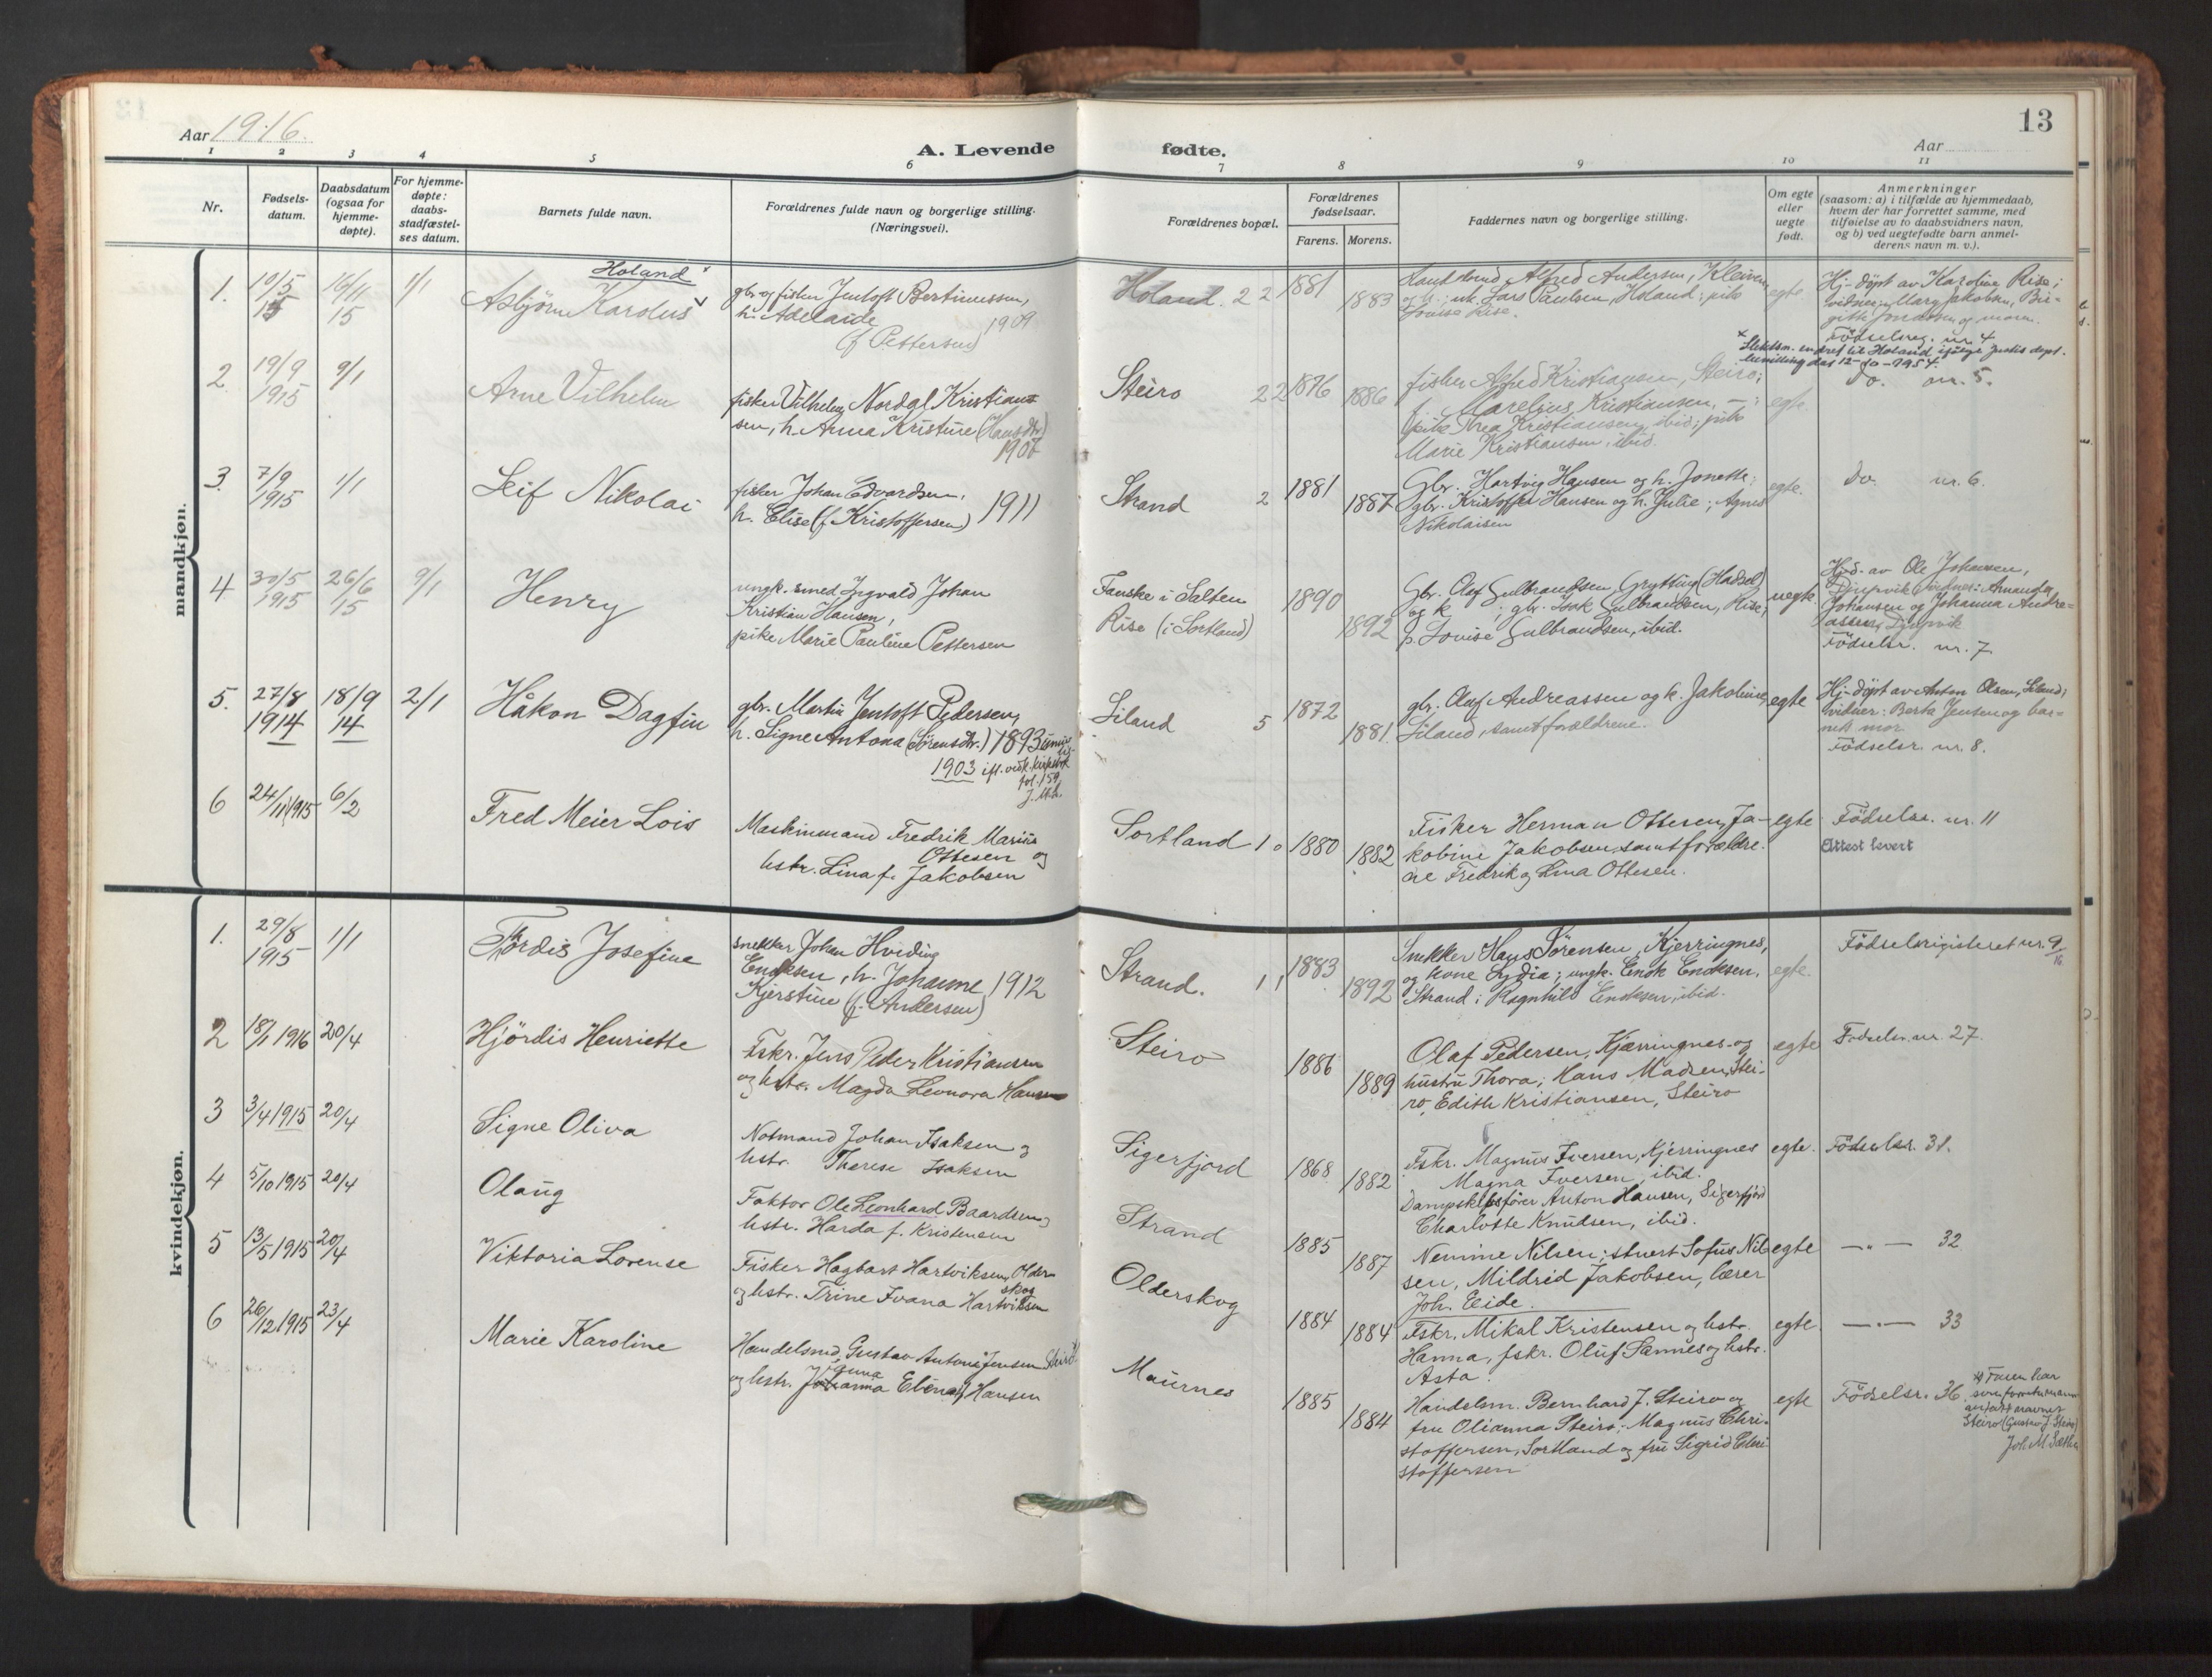 Aar 1916.
A. Levende fødte.
Aar
13
1 2 3 4 5 6 7 8 9 10 11
Nr.
Fødsels-
datum.
Daabsdatum
(ogsaa for
hjemme-
døpte).
For hjemme-
døpte:
daabs-
stadfæstel-
ses datum.
Barnets fulde navn.
Forældrenes fulde navn og borgerlige stilling.
(Næringsvei).
Forældrenes bopæl.
Forældrenes
fødselsaar.
Farens. Morens.
Faddernes navn og borgerlige stilling.
Om egte
eller
uegte
født.
Anmerkninger
(saasom: a) i tilfælde av hjemmedaab,
hvem der har forrettet samme, med
tilføielse av to daabsvidners navn,
og b) ved uegtefødte barn anmel-
derens navn m. v.).
mandkjøn.
1. 10/5 15
16/11 15
1/1
Holand ×
Asbjørn Karolus
gbr. og fisker Jentoft Bertinussen,
h. Adelaide
(f. Pettersen) 1909
Holand. 2 2
1881
1883
Alfred Andersen, Kleiven
og h.; uk. Lars Paulsen, Holand; pike
Lovise Rise.
egte
Hj-døpt av Karoline Rise;
vidner: Marg. Jakobsen, Bir-
gith Jonassen og moren.
Fødselsreg. nr. 4
× Slektsn. endret til Holand ifølge Justis dept.
bevilling das 12-10-1954.
2. 19/9 1915
9/1
Arne Vilhelm
fisker Vilhelm Nordgl. Kristian-
sen, h. Anna Kristine (Hansdtr)
1907
Steiro 2 2
1876
1886
fisker Alfred Kristiansen, Steiro;
f. Marelius Kristiansen, —;
pike Thea Kristiansen, ibid; pike
Marie Kristiansen, ibid.
egte.
Do. nr. 5.
3. 7/9 1915
1/1
Leif Nikolai
fisker Johan Edvardsen,
h. Elise (f. Kristoffersen) 1911
Strand 2
1881
1887
Gbr. Hartvig Hansen og h. Jonette;
gbr. Kristoffer Hansen og h. Julie; Agnes
Nikolaisen
egte.
Do. nr. 6.
4 30/5 1915
26/6 15
9/1
Henry
ungk. smed Ingvald Johan
Kristian Hansen,
pike Marie Pauline Pettersen
Fauske i Salten
Rise (i Sortland)
1890
1892
Gbr. Olaf Gulbrandsen Grytting (Hadsel)
og k ; gbr. Isak Gulbrandsen, Rise;
p. Lovise Gulbrandsen, ibid.
uegte
Hjd. av Ole Johansen,
Djupvik. Vidner: Amanda
Johansen og Johanna Andre-
assen, Djupvik
Fødselsr. nr. 7
5. 27/8 1914
18/9 14
2/1
Håkon Dagfin
gbr. Martin Jentoft Pedersen,
h. Signe Antona (Sørensdtr.) 1893
1903 ifl. vedk. kirkebok
fol. 159
J. M. S.
Liland 5
1872
1881.
gbr. Olaf Andreassen og k. Jakobine,
Liland, samt forældrene.
egte
Hj-døpt av Anton Olsen, Liland;
vidner: Berta Jensen og bar-
nets mor
Fødselsr. nr. 8.
6 24/11 1915
6/2
Fred Meier Lois
Maskinmand Fredrik Marius
Ottesen og
hstr. Lina f. Jakobsen
Sortland 1 0
1880
1882
Fisker Herman Ottesen, Ja-
kobine Jakobsen, samt forældre-
ne Fredrik og Lina Ottesen.
egte
Fødselsr. nr. 11
Attest levert
kvindekjøn.
1. 29/8 1915
1/1
Tordis Josefine
snekker Johan Hviding
Enoksen, h. Johanne 1912
Kjerstine (f. Andersen)
Strand. 1 1
1883
1892
Snekker Hans Sørensen, Kjerringnes,
og kone Lydia; ungk. Enok Enoksen,
Strand; Ragnhild Enoksen, ibid.
egte.
Fødselsrigisteret nr. 9/16
2 18/1 1916
20/4
Hjørdis Henriette
Fskr. Jens Peder Kristiansen
og hstr. Magda Leonora Hansen
Steiro
1886
1889
Olaf Pedersen, Kjærringnes og
hustru Thora; Hans Madsen, Stei-
ro, Edith Kristiansen, Steiro
egte
Fødselsr. nr. 27.
3 3/4 1915
20/4
Signe Oliva
Notmand Johan Isaksen og
hstr. Therese Isaksen
Sigerfjord
1868
1882
Fskr. Magnus Iversen, Kjerringnes
Magna Iversen, ibid.
Dampskibsfører Anton Hansen, Sigerfjord
Charlotte Knudsen, ibid.
egte.
Fødselsr. 31.
4 5/10 1915
20/4
Olaug
Faktor Ole Leonhard Baardsen og
hstr. Harda f. Kristensen
Strand
1885
1887
Nemine Nilsen; stuert Sofus Nil-
sen, Mildrid Jakobsen, lærer
Joh. Eide.
egte
— " — 32
5 13/5 1915
20/4
Viktoria Lorense
Fisker Hagbart Hartviksen, Older-
skog
og hstr. Trine Ivana Hartviksen
Olderskog
1884
1884
Fskr. Mikal Kristensen og hstr.
Hanna, fskr. Oluf Sannes og hstr.
Asta.
egte.
— " — 33
6 26/12 1915
23/4
Marie Karoline
Handelsmd. Gustav Antoni Jensen Steiro ×)
og hstr. Johanna Elena f. Hansen
Maurnes
1885
1884
Handelsm. Bernhard J. Steiro og
fru Olianna Steiro; Magnus Chri-
stoffersen, Sortland og fru Sigrid Chri-
stoffersen
egte
Fødselsr. 36.
×) Faren har
antatt navnet
Steiro (Gustav J. Steiro)
Joh. M. Sæther